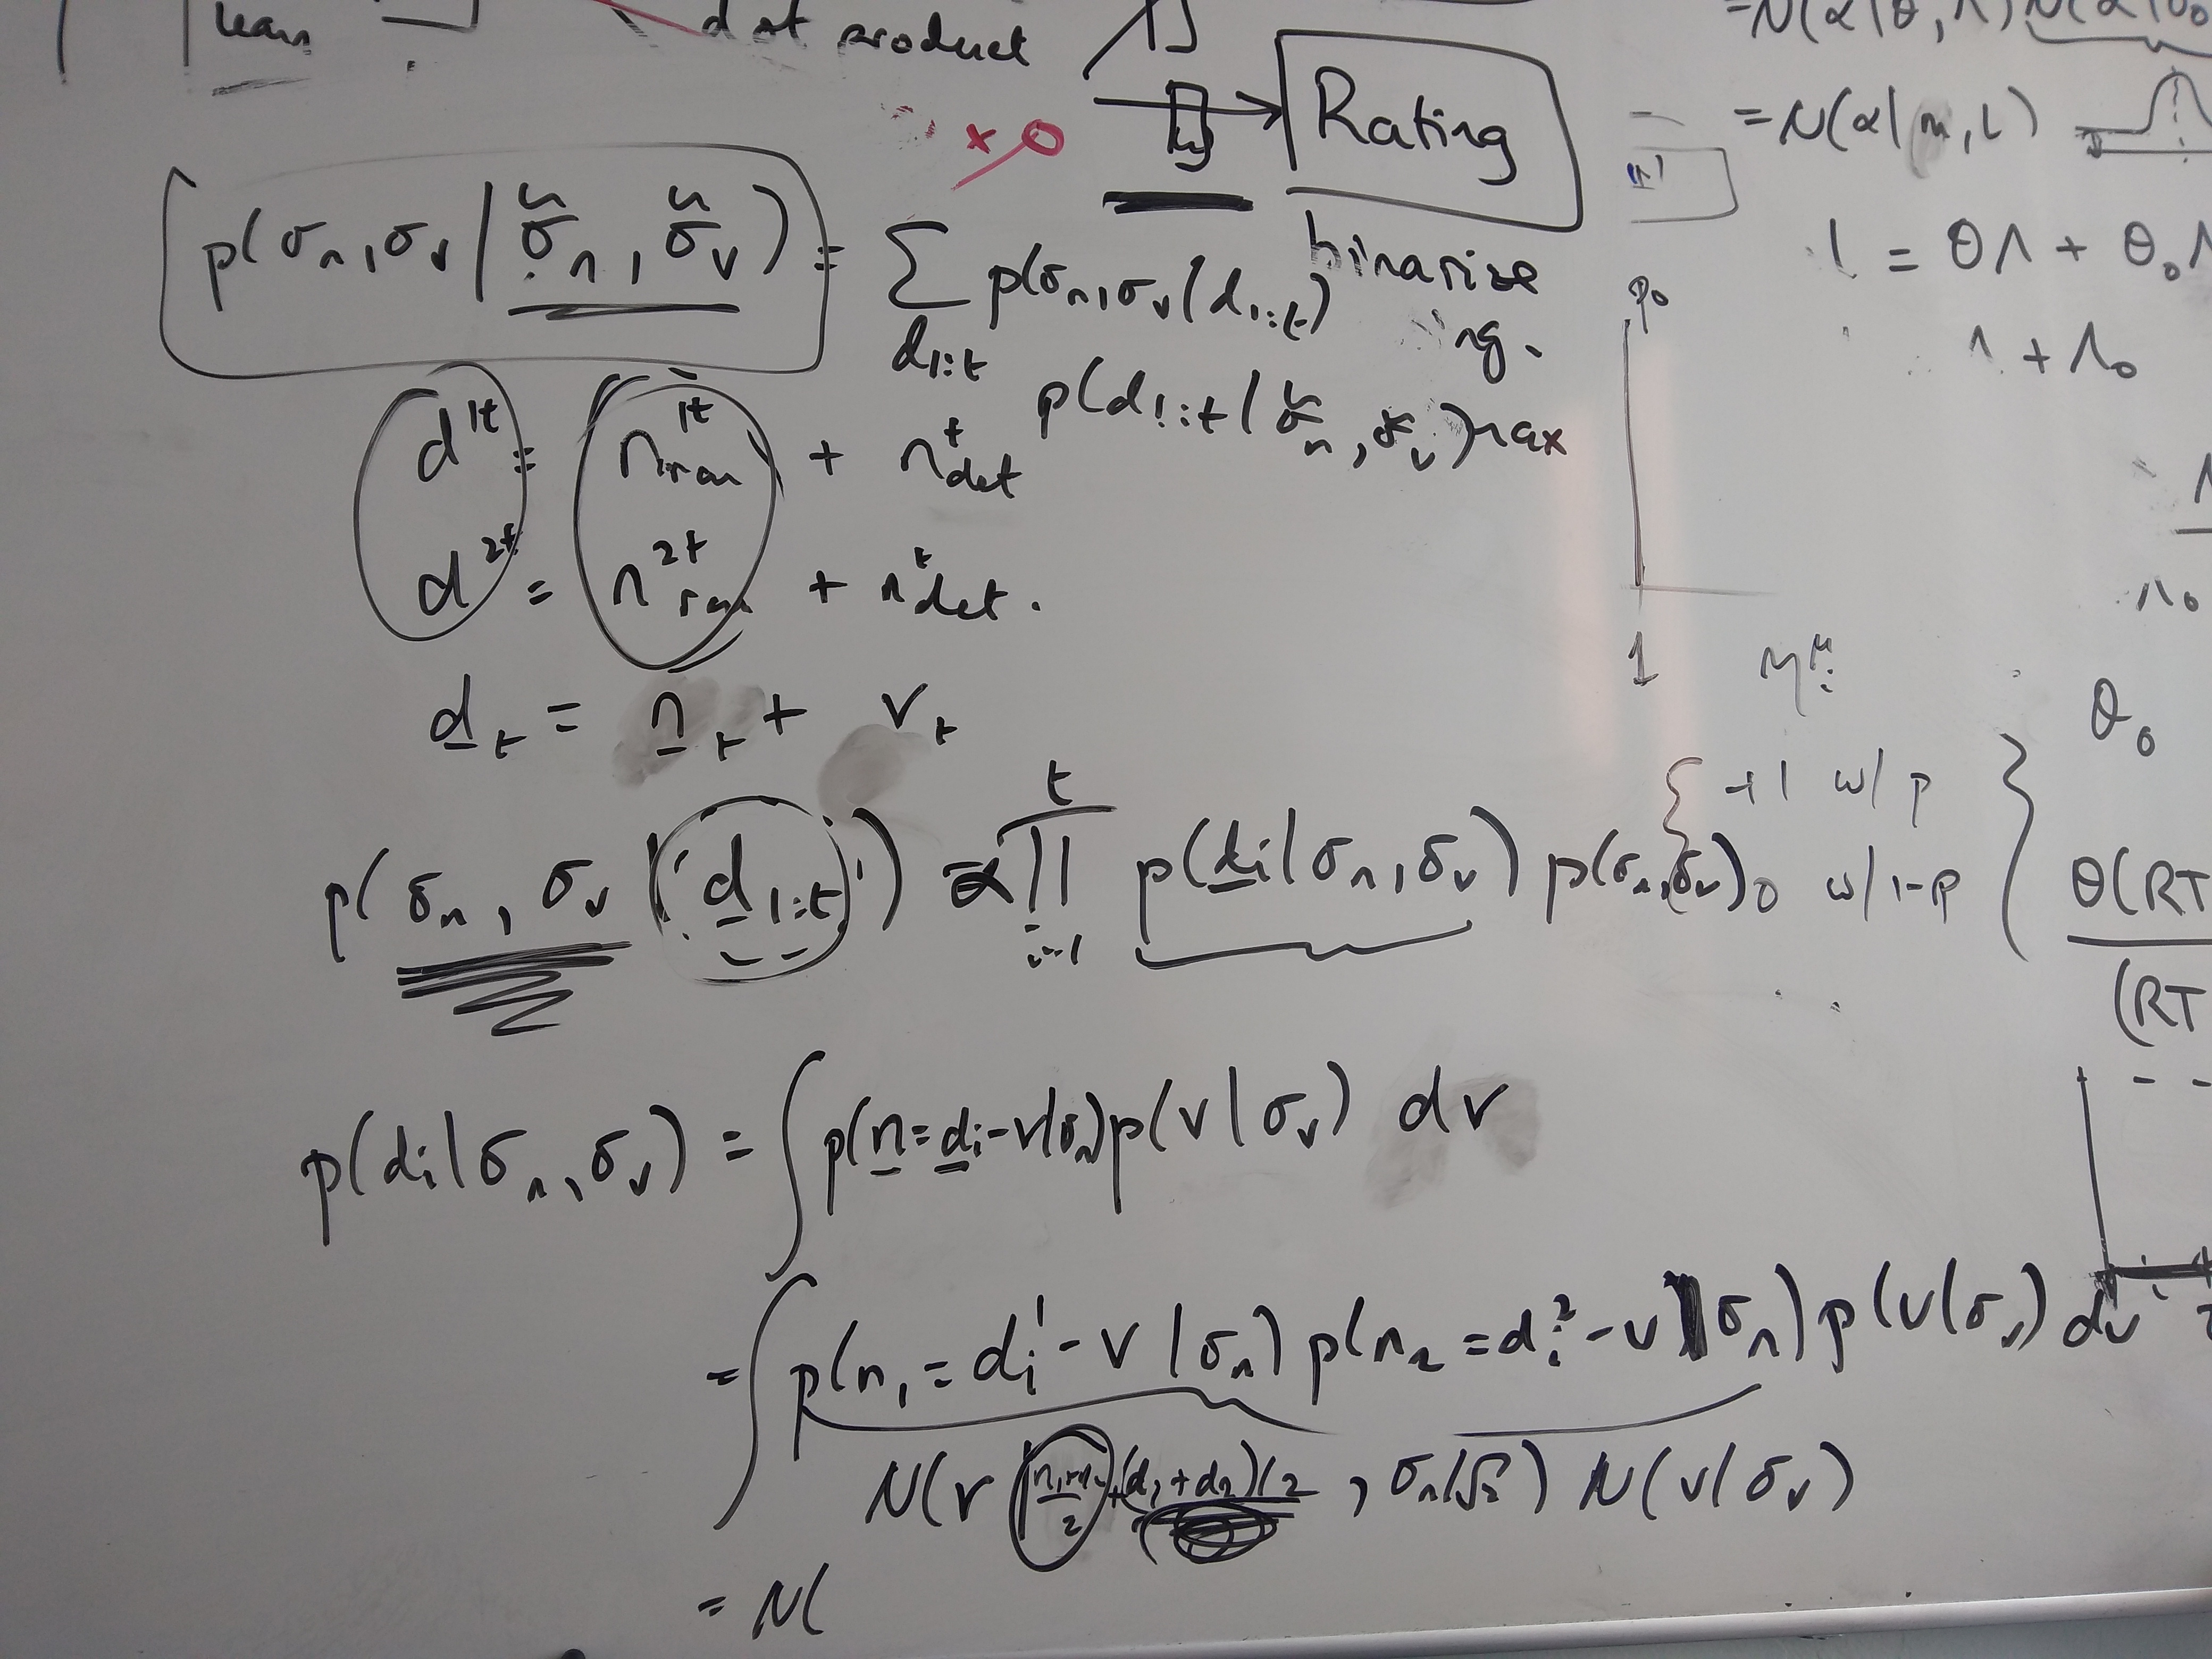 lean
dot product
Rating
binarize
ng.
max
p(σₙ, σᵥ | σ̃ₙ, σ̃ᵥ) = Σ_{d1:t} p(σₙ, σᵥ | d1:t)
p(d1:t | σ̃ₙ, σ̃ᵥ)
d^{1t} = n^{1t}_{ran} + n^{t}_{det}
d^{2t} = n^{2t}_{ran} + n^{t}_{det}.
d_t = n_t + v_t
p(σₙ, σᵥ | d_{1:t}) ∝ ∏_{i=1}^{t} p(d_i | σₙ, σᵥ) p(σₙ, σᵥ)
p(d_i | σₙ, σᵥ) = ∫ p(n = d_i - v | σₙ) p(v | σᵥ) dv
= ∫ p(n₁ = d_i^1 - v | σₙ) p(n₂ = d_i^2 - v | σₙ) p(v | σᵥ) dv
N(v | (d₁ + d₂)/2, σₙ/√2) N(v | σᵥ)
= N(
= N(α | θ, Λ) N(α | θ₀
= N(α | m, L)
l = θΛ + θ₀Λ
Λ + Λ₀
p₀
1
Λ₀
θ₀
{ +1 w/ p
0 w/ 1-p }
θ(RT
(RT